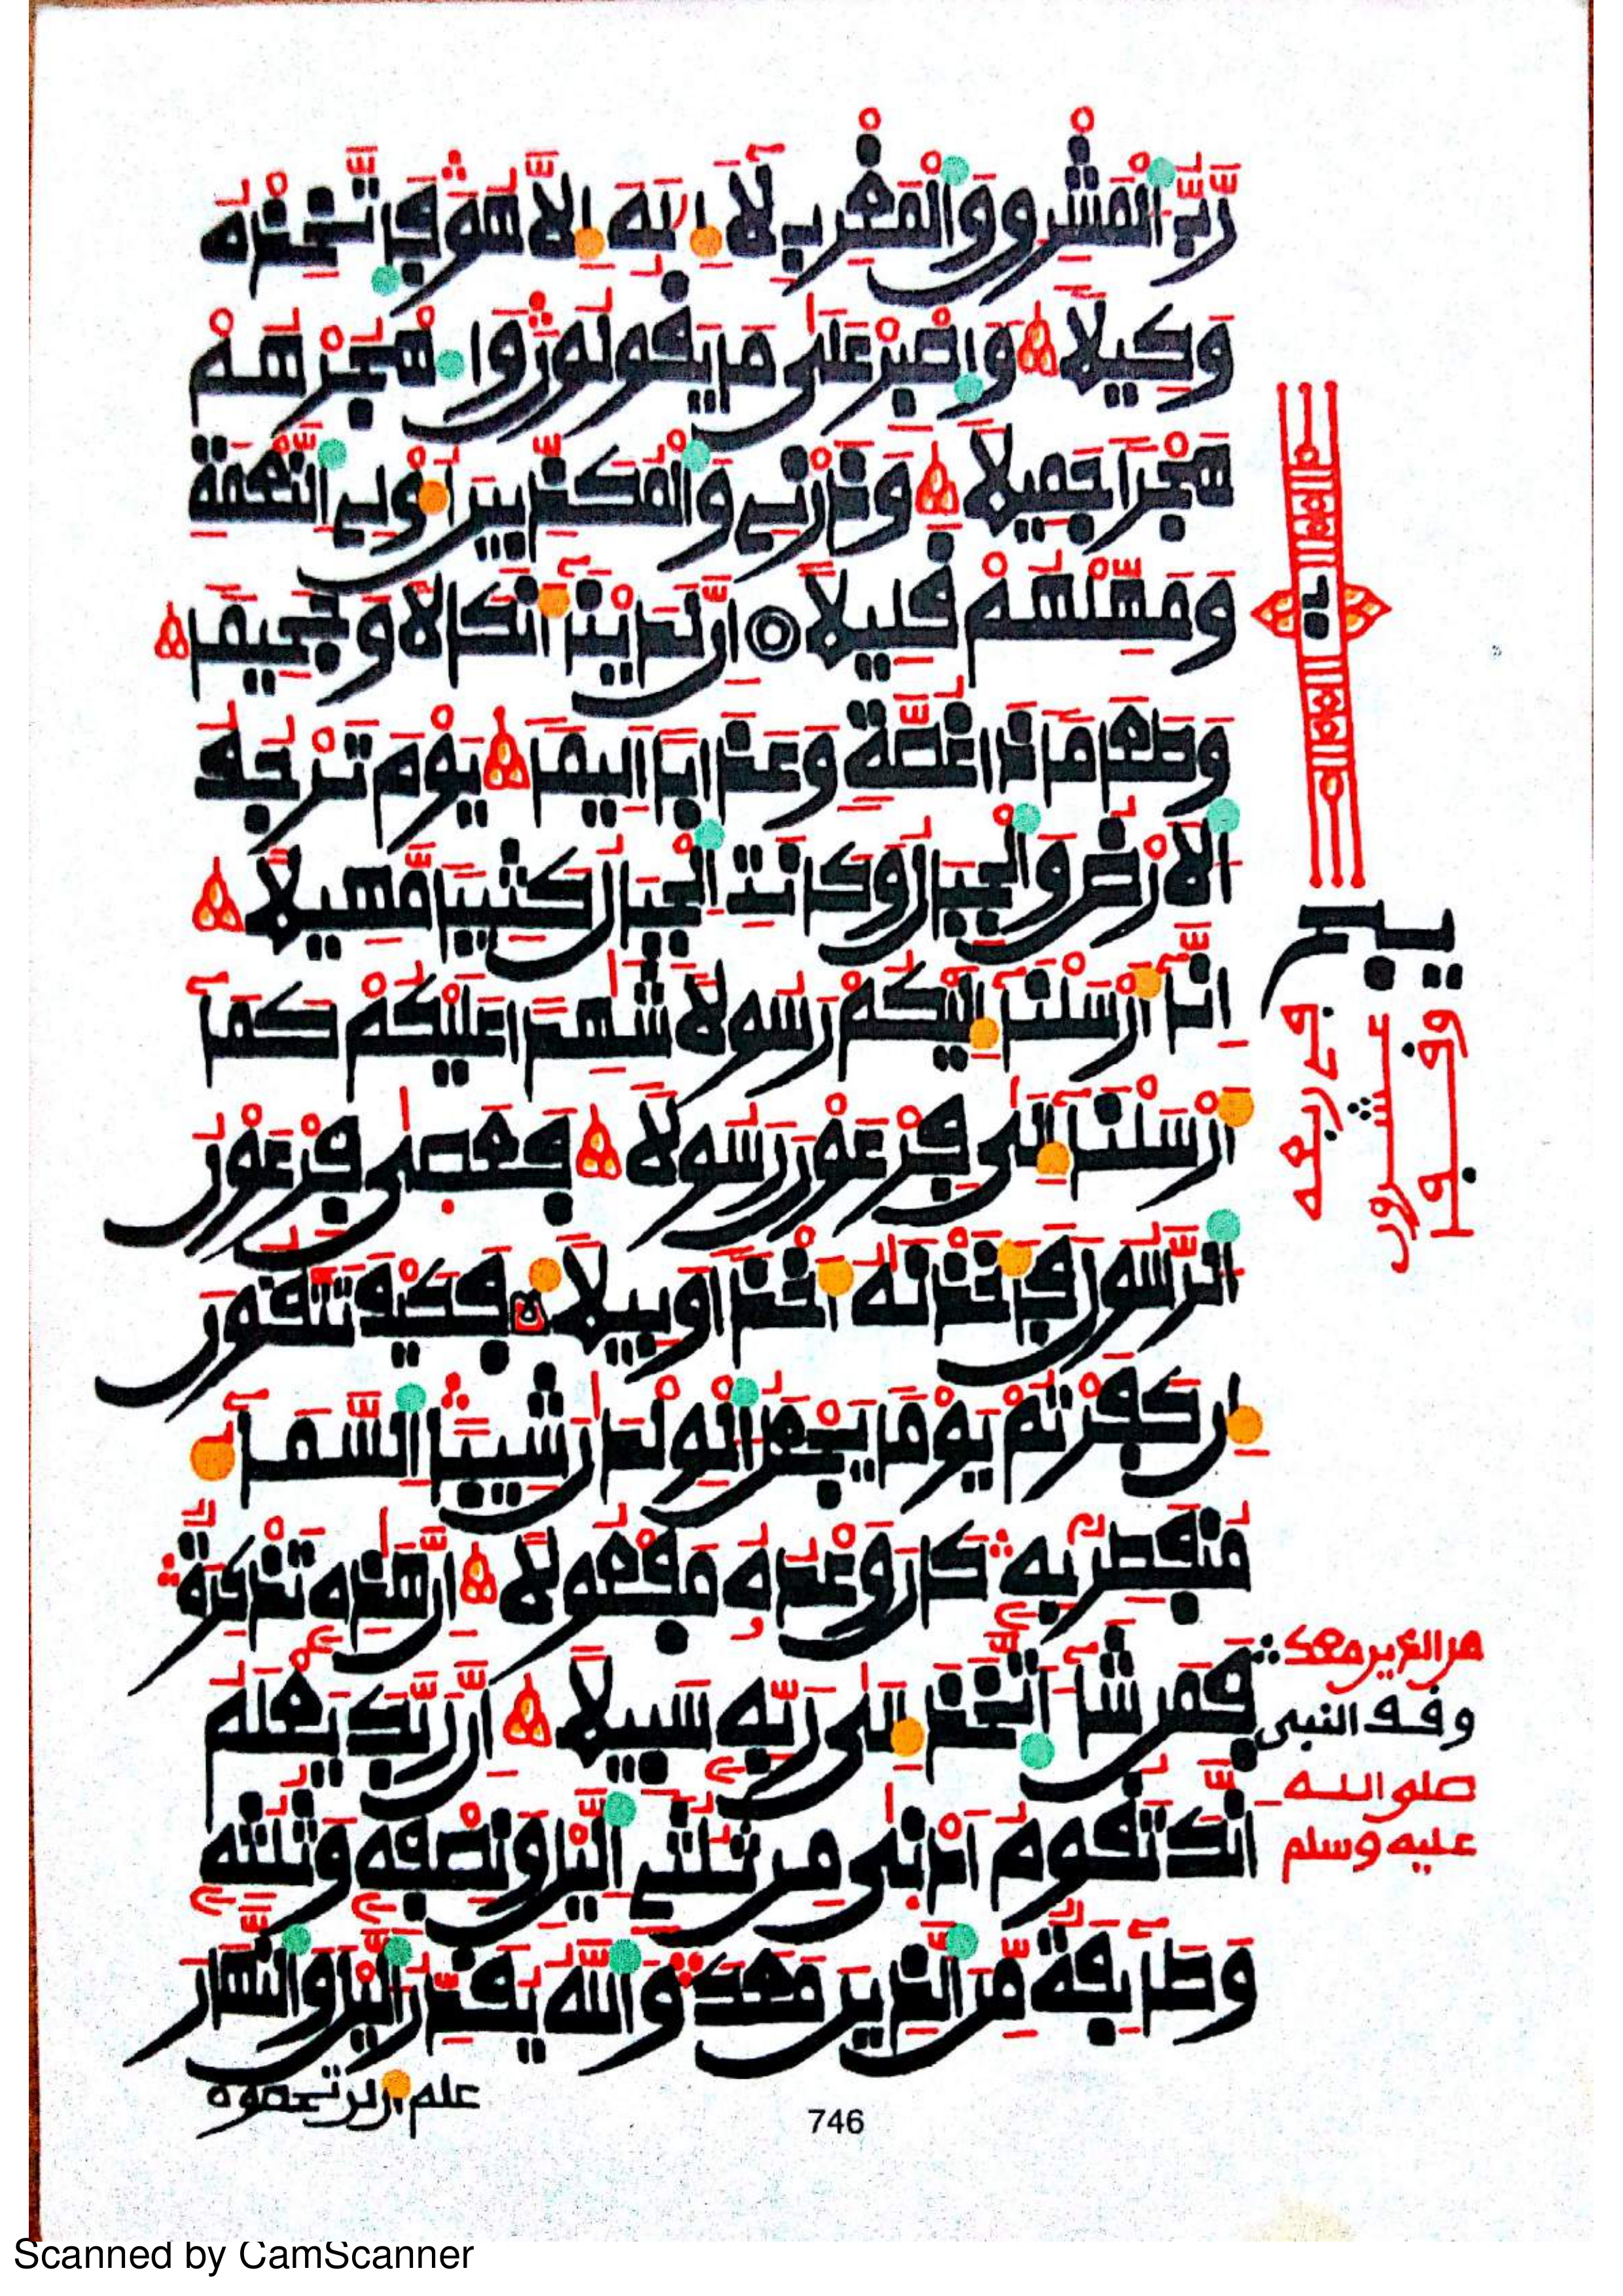 رَّبُّ الْمَشْرِقِ وَالْمَغْرِبِ لَآ إِلَٰهَ إِلَّا هُوَ فَاتَّخِذْهُ
وَكِيلًا وَاصْبِرْ عَلَىٰ مَا يَقُولُونَ وَاهْجُرْهُمْ
هَجْرًا جَمِيلًا وَذَرْنِي وَالْمُكَذِّبِينَ أُولِي النَّعْمَةِ
وَمَهِّلْهُمْ قَلِيلًا إِنَّ لَدَيْنَآ أَنكَالًا وَجَحِيمًا
وَطَعَامًا ذَا غُصَّةٍ وَعَذَابًا أَلِيمًا يَوْمَ تَرْجُفُ
الْأَرْضُ وَالْجِبَالُ وَكَانَتِ الْجِبَالُ كَثِيبًا مَّهِيلًا
إِنَّآ أَرْسَلْنَآ إِلَيْكُمْ رَسُولًا شَٰهِدًا عَلَيْكُمْ كَمَآ
أَرْسَلْنَآ إِلَىٰ فِرْعَوْنَ رَسُولًا فَعَصَىٰ فِرْعَوْنُ
الرَّسُولَ فَأَخَذْنَٰهُ أَخْذًا وَبِيلًا فَكَيْفَ تَتَّقُونَ
إِن كَفَرْتُمْ يَوْمًا يَجْعَلُ الْوِلْدَٰنَ شِيبًا السَّمَآءُ
مُنفَطِرٌ بِهِ كَانَ وَعْدُهُ مَفْعُولًا إِنَّ هَٰذِهِ تَذْكِرَةٌ
فَمَن شَآءَ اتَّخَذَ إِلَىٰ رَبِّهِ سَبِيلًا إِنَّ رَبَّكَ يَعْلَمُ
أَنَّكَ تَقُومُ أَدْنَىٰ مِن ثُلُثَيِ الَّيْلِ وَنِصْفِهِ وَثُلُثِهِ
وَطَآئِفَةٌ مِّنَ الَّذِينَ مَعَكَ وَاللَّهُ يُقَدِّرُ الَّيْلَ وَالنَّهَارَ
علم أن لن تحصوه
من الذين معك
وقف النبي
صلى الله
عليه وسلم
746
Scanned by CamScanner